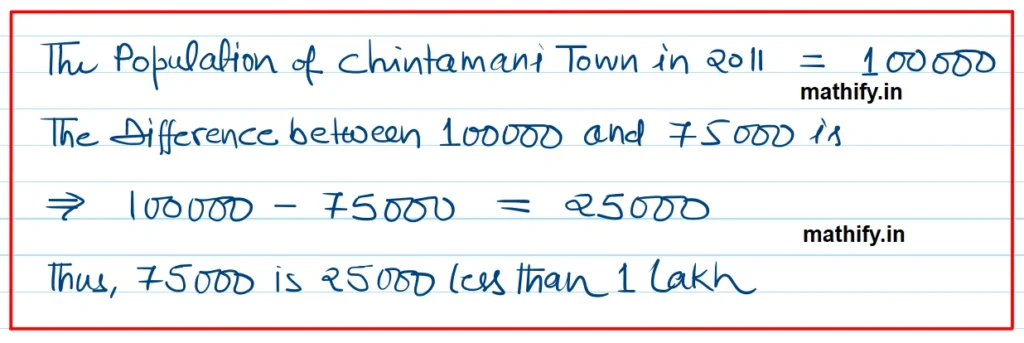 The Population of Chintamani Town in 2011 = 100000
mathify.in
The Difference between 100000 and 75000 is
⇒ 100000 - 75000 = 25000
mathify.in
Thus, 75000 is 25000 less than 1 lakh